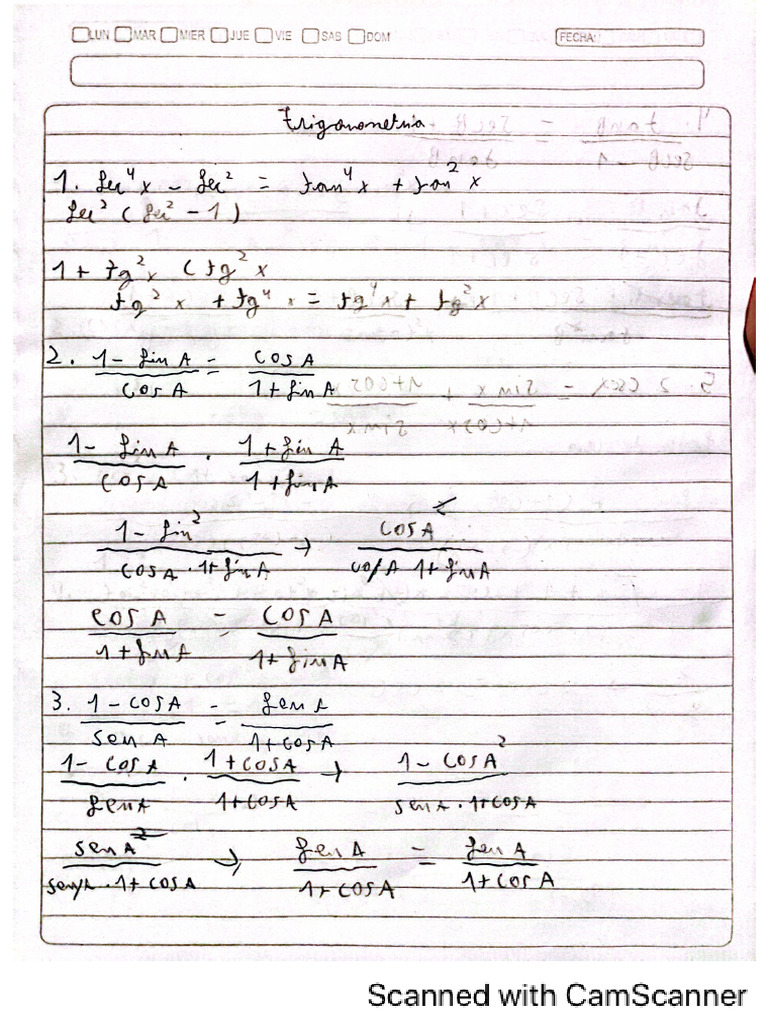 LUN MAR MIER JUE VIE SAS DOM FECHA:
Trigonometria
1. Sec⁴ x - Sec² = tan⁴ x + tan² x
Sec² (Sec² - 1)
1 + tg² x (tg² x
tg² x + tg⁴ x = tg⁴ x + tg² x
2. (1 - Sin A)/(COS A) = (COS A)/(1 + Sin A)
(1 - Sin A)/(COS A) · (1 + Sin A)/(1 + Sin A)
(1 - Sin²)/(COS A · 1 + Sin A) → (COS A²)/(COS A 1 + Sin A)
(COS A)/(1 + Sin A) = (COS A)/(1 + Sin A)
3. (1 - COS A)/(Sen A) = (Sen A)/(1 + COS A)
(1 - COS A)/(Sen A) · (1 + COS A)/(1 + COS A) → (1 - COS A²)/(Sen A · 1 + COS A)
(Sen A²)/(Sen A · 1 + COS A) → (Sen A)/(1 + COS A) = (Sen A)/(1 + COS A)
Scanned with CamScanner